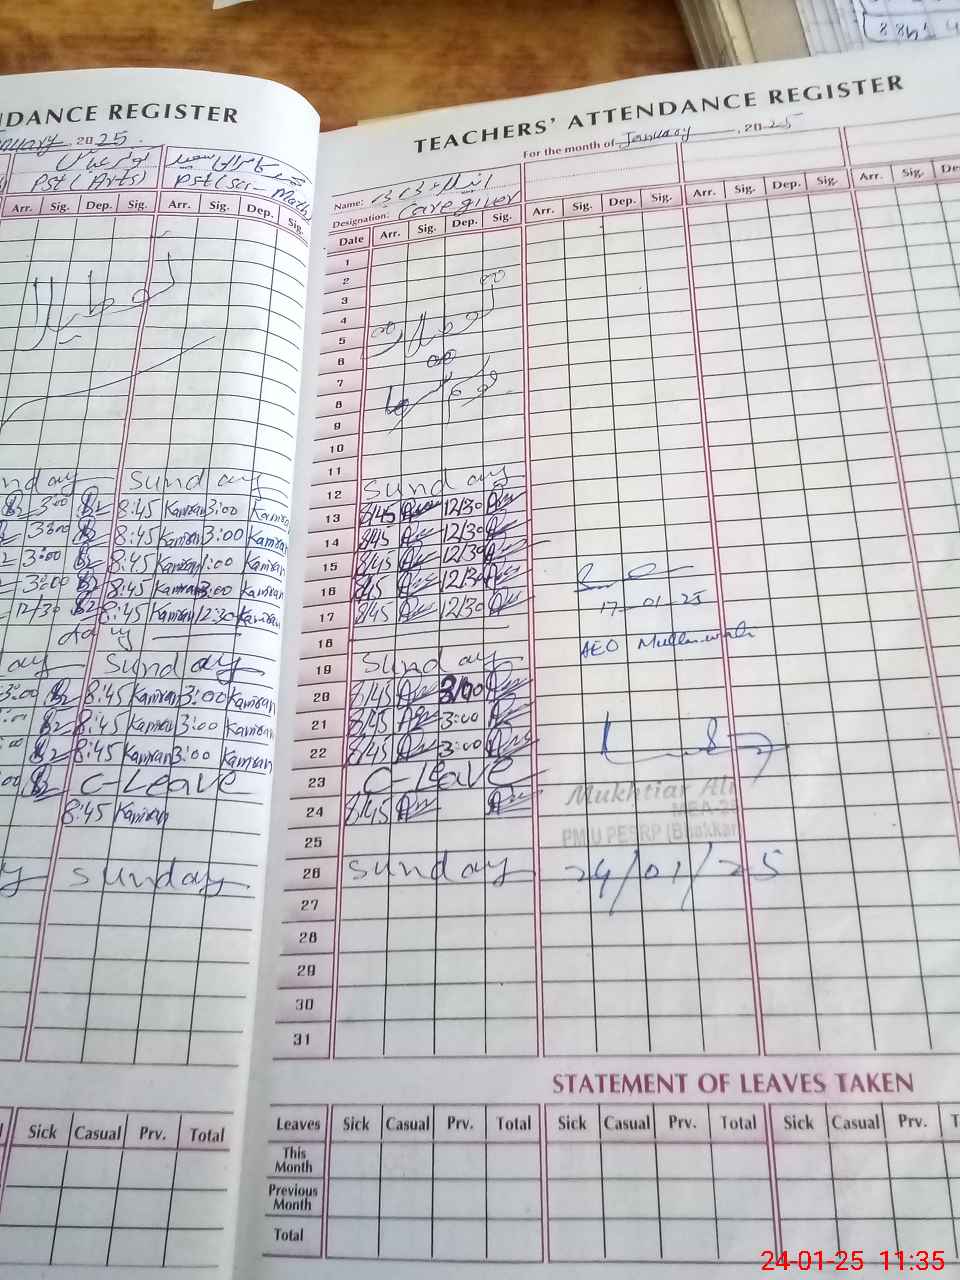 NDANCE REGISTER
January 2025.
Pst (Arts)
Pst (Sci-Math)
Arr. Sig. Dep. Sig. Arr. Sig. Dep. Sig.
nday Sunday
3:00 8:45 Kamran 3:00 Kamran
3:00 8:45 Kamran 3:00 Kamran
3:00 8:45 Kamran 1:00 Kamran
3:00 8:45 Kamran 3:00 Kamran
12/30 8:45 Kamran 12:30 Kamran
ay Sunday
3:00 8:45 Kamran 3:00 Kamran
:00 8:45 Kamran 3:00 Kamran
:00 8:45 Kamran 3:00 Kamran
:00 C-Leave
8:45 Kamran
y Sunday
Sick Casual Prv. Total
TEACHERS' ATTENDANCE REGISTER
For the month of January, 2025
Name:
Designation: Caregiver
Date Arr. Sig. Dep. Sig. Arr. Sig. Dep. Sig. Arr. Sig. Dep. Sig. Arr. Sig. De
1
2
3
4
5
6
7
8
9
10
11
12 Sunday
13 8/45 12/30
14 8/45 12/30
15 8/45 12/30
16 8/45 12/30
17 8/45 12/30 17-01-25
18 AEO
19 Sunday
20 8/45 3/00
21 8/45 3:00
22 8/45 3:00
23 C-Leave
Mukhtiar Ali
24 8/45
MEA-
25 PMIU PESRP (Bhakkar
26 Sunday 24/01/25
27
28
29
30
31
STATEMENT OF LEAVES TAKEN
Leaves Sick Casual Prv. Total Sick Casual Prv. Total Sick Casual Prv. T
This Month
Previous Month
Total
24-01-25 11:35